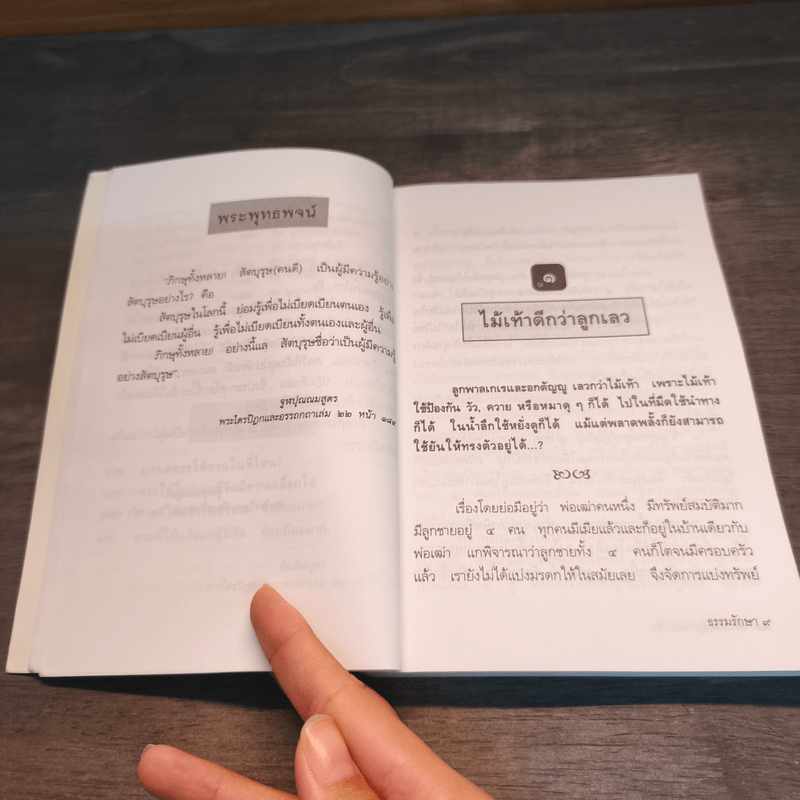 พระพุทธพจน์
"ภิกษุทั้งหลาย! สัตบุรุษ(คนดี) เป็นผู้มีความรู้อย่าง
สัตบุรุษอย่างไร? คือ
สัตบุรุษในโลกนี้ ย่อมรู้เพื่อไม่เบียดเบียนตนเอง รู้เพื่อ
ไม่เบียดเบียนผู้อื่น รู้เพื่อไม่เบียดเบียนทั้งตนเองและผู้อื่น
ภิกษุทั้งหลาย! อย่างนี้แล สัตบุรุษชื่อว่าเป็นผู้มีความรู้
อย่างสัตบุรุษ".
จูฬปุณณมสูตร
พระไตรปิฎกและอรรถกถาเล่ม ๒๒ หน้า ๑๘๑
๑
ไม้เท้าดีกว่าลูกเลว
ลูกพาลเกเรและอกตัญญู เลวกว่าไม้เท้า เพราะไม้เท้า
ใช้ป้องกัน วัว, ควาย หรือหมาดุ ๆ ก็ได้ ไปในที่มืดใช้นำทาง
ก็ได้ ในน้ำลึกใช้หยั่งดูก็ได้ แม้แต่พลาดพลั้งก็ยังสามารถ
ใช้ยันให้ทรงตัวอยู่ได้...?
เรื่องโดยย่อมีอยู่ว่า พ่อเฒ่าคนหนึ่ง มีทรัพย์สมบัติมาก
มีลูกชายอยู่ ๔ คน ทุกคนมีเมียแล้วและก็อยู่ในบ้านเดียวกับ
พ่อเฒ่า แกพิจารณาว่าลูกชายทั้ง ๔ คนก็โตจนมีครอบครัว
แล้ว เรายังไม่ได้แบ่งมรดกให้ในสมัยเลย จึงจัดการแบ่งทรัพย์
ธรรมรักษา ๙